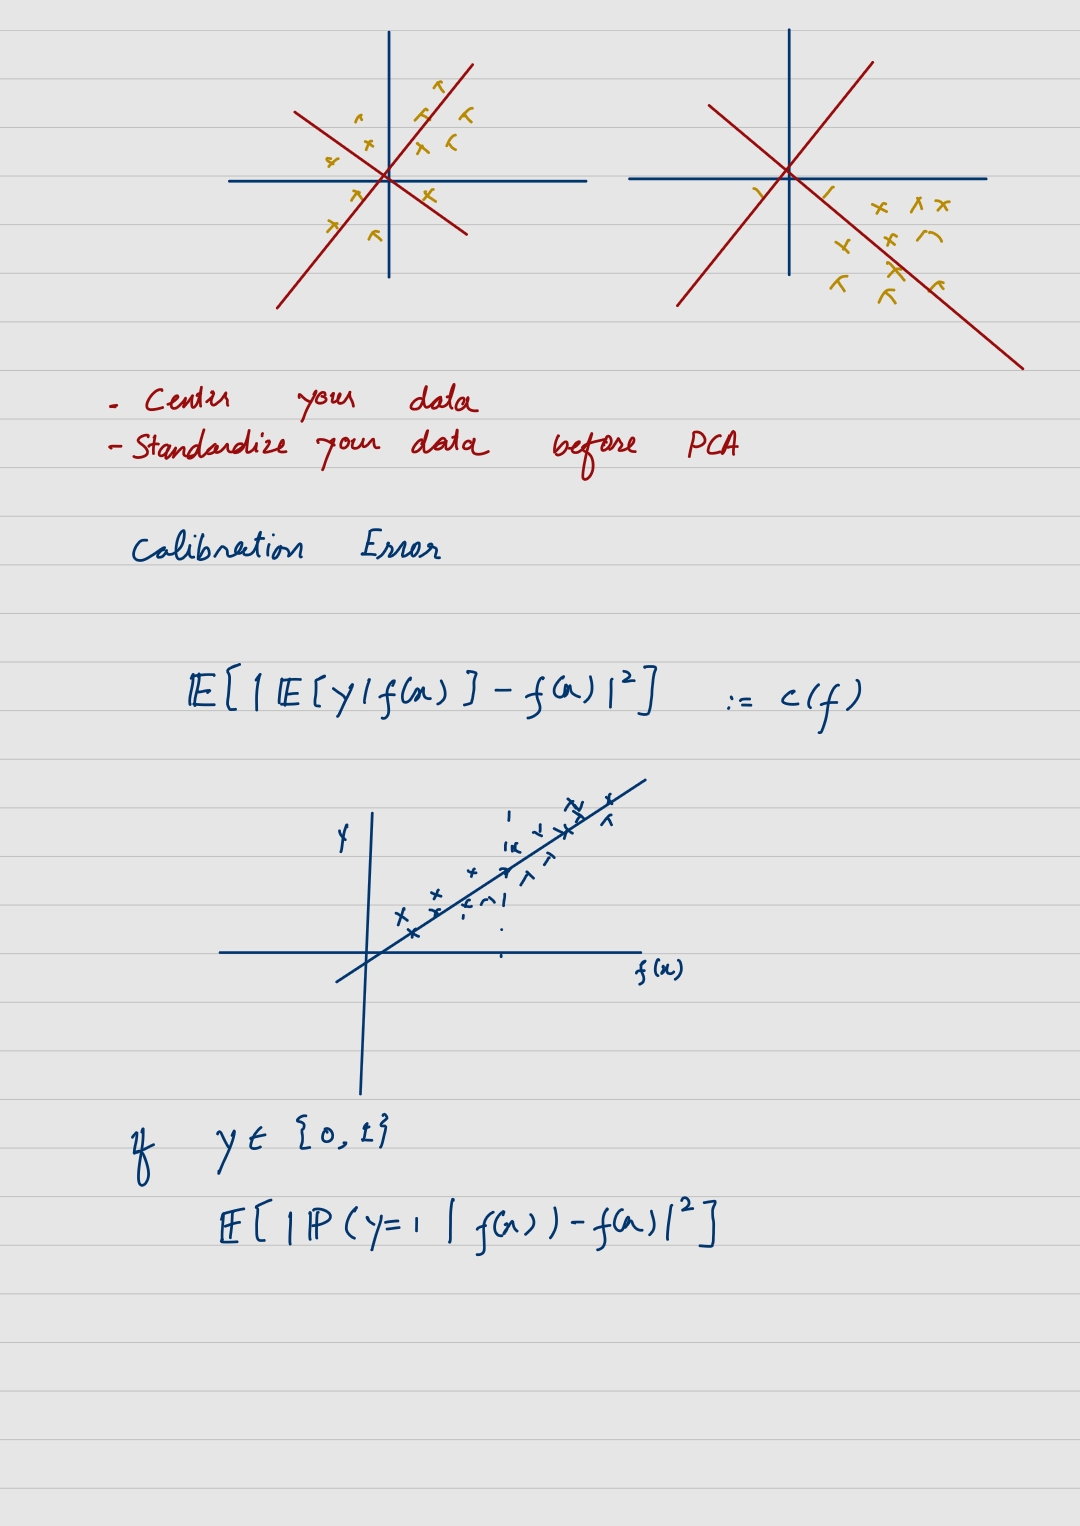 - Center your data
- Standardize your data before PCA
Calibration Error
𝔼[|𝔼[y|f(x)] - f(x)|²] := c(f)
y
f(x)
if y ∈ {0,1}
𝔼[|ℙ(y=1|f(x)) - f(x)|²]